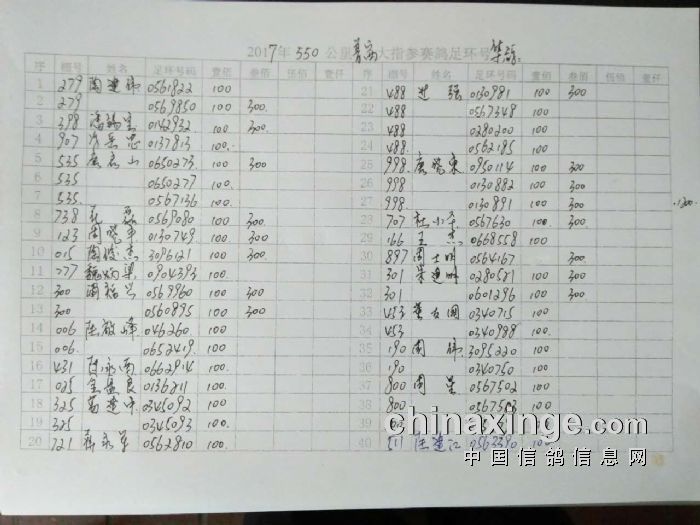 2017年 550公里 大指参赛鸽足环号
序 棚号 姓名 足环号码 壹佰 叁佰 伍佰 壹仟 序 棚号 姓名 足环号码 壹佰 叁佰 伍佰 壹仟
1 279 陶建伟 0561822 100 21 488 0130981 100 300
2 279 0569850 100 300 22 488 0567348 100
3 398 0142932 100 300 23 488 0280200 100
4 907 0137813 100 24 488 0562185 100
5 535 0650273 100 300 25 998 唐鸣东 0950114 100 300
6 535 0650277 100 26 998 0130882 100 300
7 535 0567136 100 27 998 0130891 100 300
8 738 0569080 100 300 28 707 杜小华 0567630 100 300
9 123 周晓平 0130749 100 300 29 166 王杰 0668558 100
10 015 陶俊杰 3096121 100 300 30 897 周士明 0564167 300
11 277 魏炳梁 0904393 100 31 301 朱建明 0280581 100 300
12 300 周福兴 0569960 100 300 32 301 0601296 100 300
13 300 0560895 100 300 33 453 0340715 100
14 006 陆敏峰 046260 100 34 453 0340988 100
15 006 0652419 100 35 190 周伟 3095220 100
16 431 陆永南 0662914 100 36 190 0340750 100
17 025 金益良 0136211 100 37 800 周星 0567502 100
18 325 0345092 100 38 800 0567503 100
19 325 0345093 100
20 721 0562810 100 40 511 汪建江 100
chinaxinge.com
中国信鸽信息网